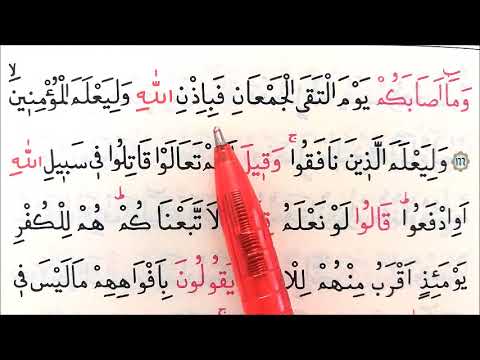 وَمَٓا اَصَابَكُمْ يَوْمَ الْتَقَى الْجَمْعَانِ فَبِاِذْنِ اللّٰهِ وَلِيَعْلَمَ الْمُؤْمِنٖينَ ۙ
﴿١٦٦﴾ وَلِيَعْلَمَ الَّذٖينَ نَافَقُواۚ وَقٖيلَ لَهُمْ تَعَالَوْا قَاتِلُوا فٖى سَبٖيلِ اللّٰهِ
اَوِادْفَعُواۜ قَالُوا لَوْ نَعْلَمُ لَا تَّبَعْنَا كُمْۜ هُمْ لِلْكُفْرِ
يَوْمَئِذٍ اَقْرَبُ مِنْهُمْ يَقُولُونَ بِاَفْوَاهِهِمْ مَالَيْسَ فٖى